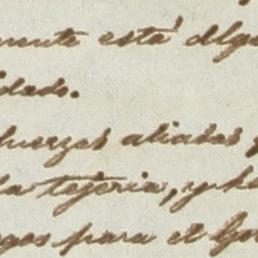 mente está algo
idado.
fuerzas aliadas
la tejeria, y ha
egos para el Go